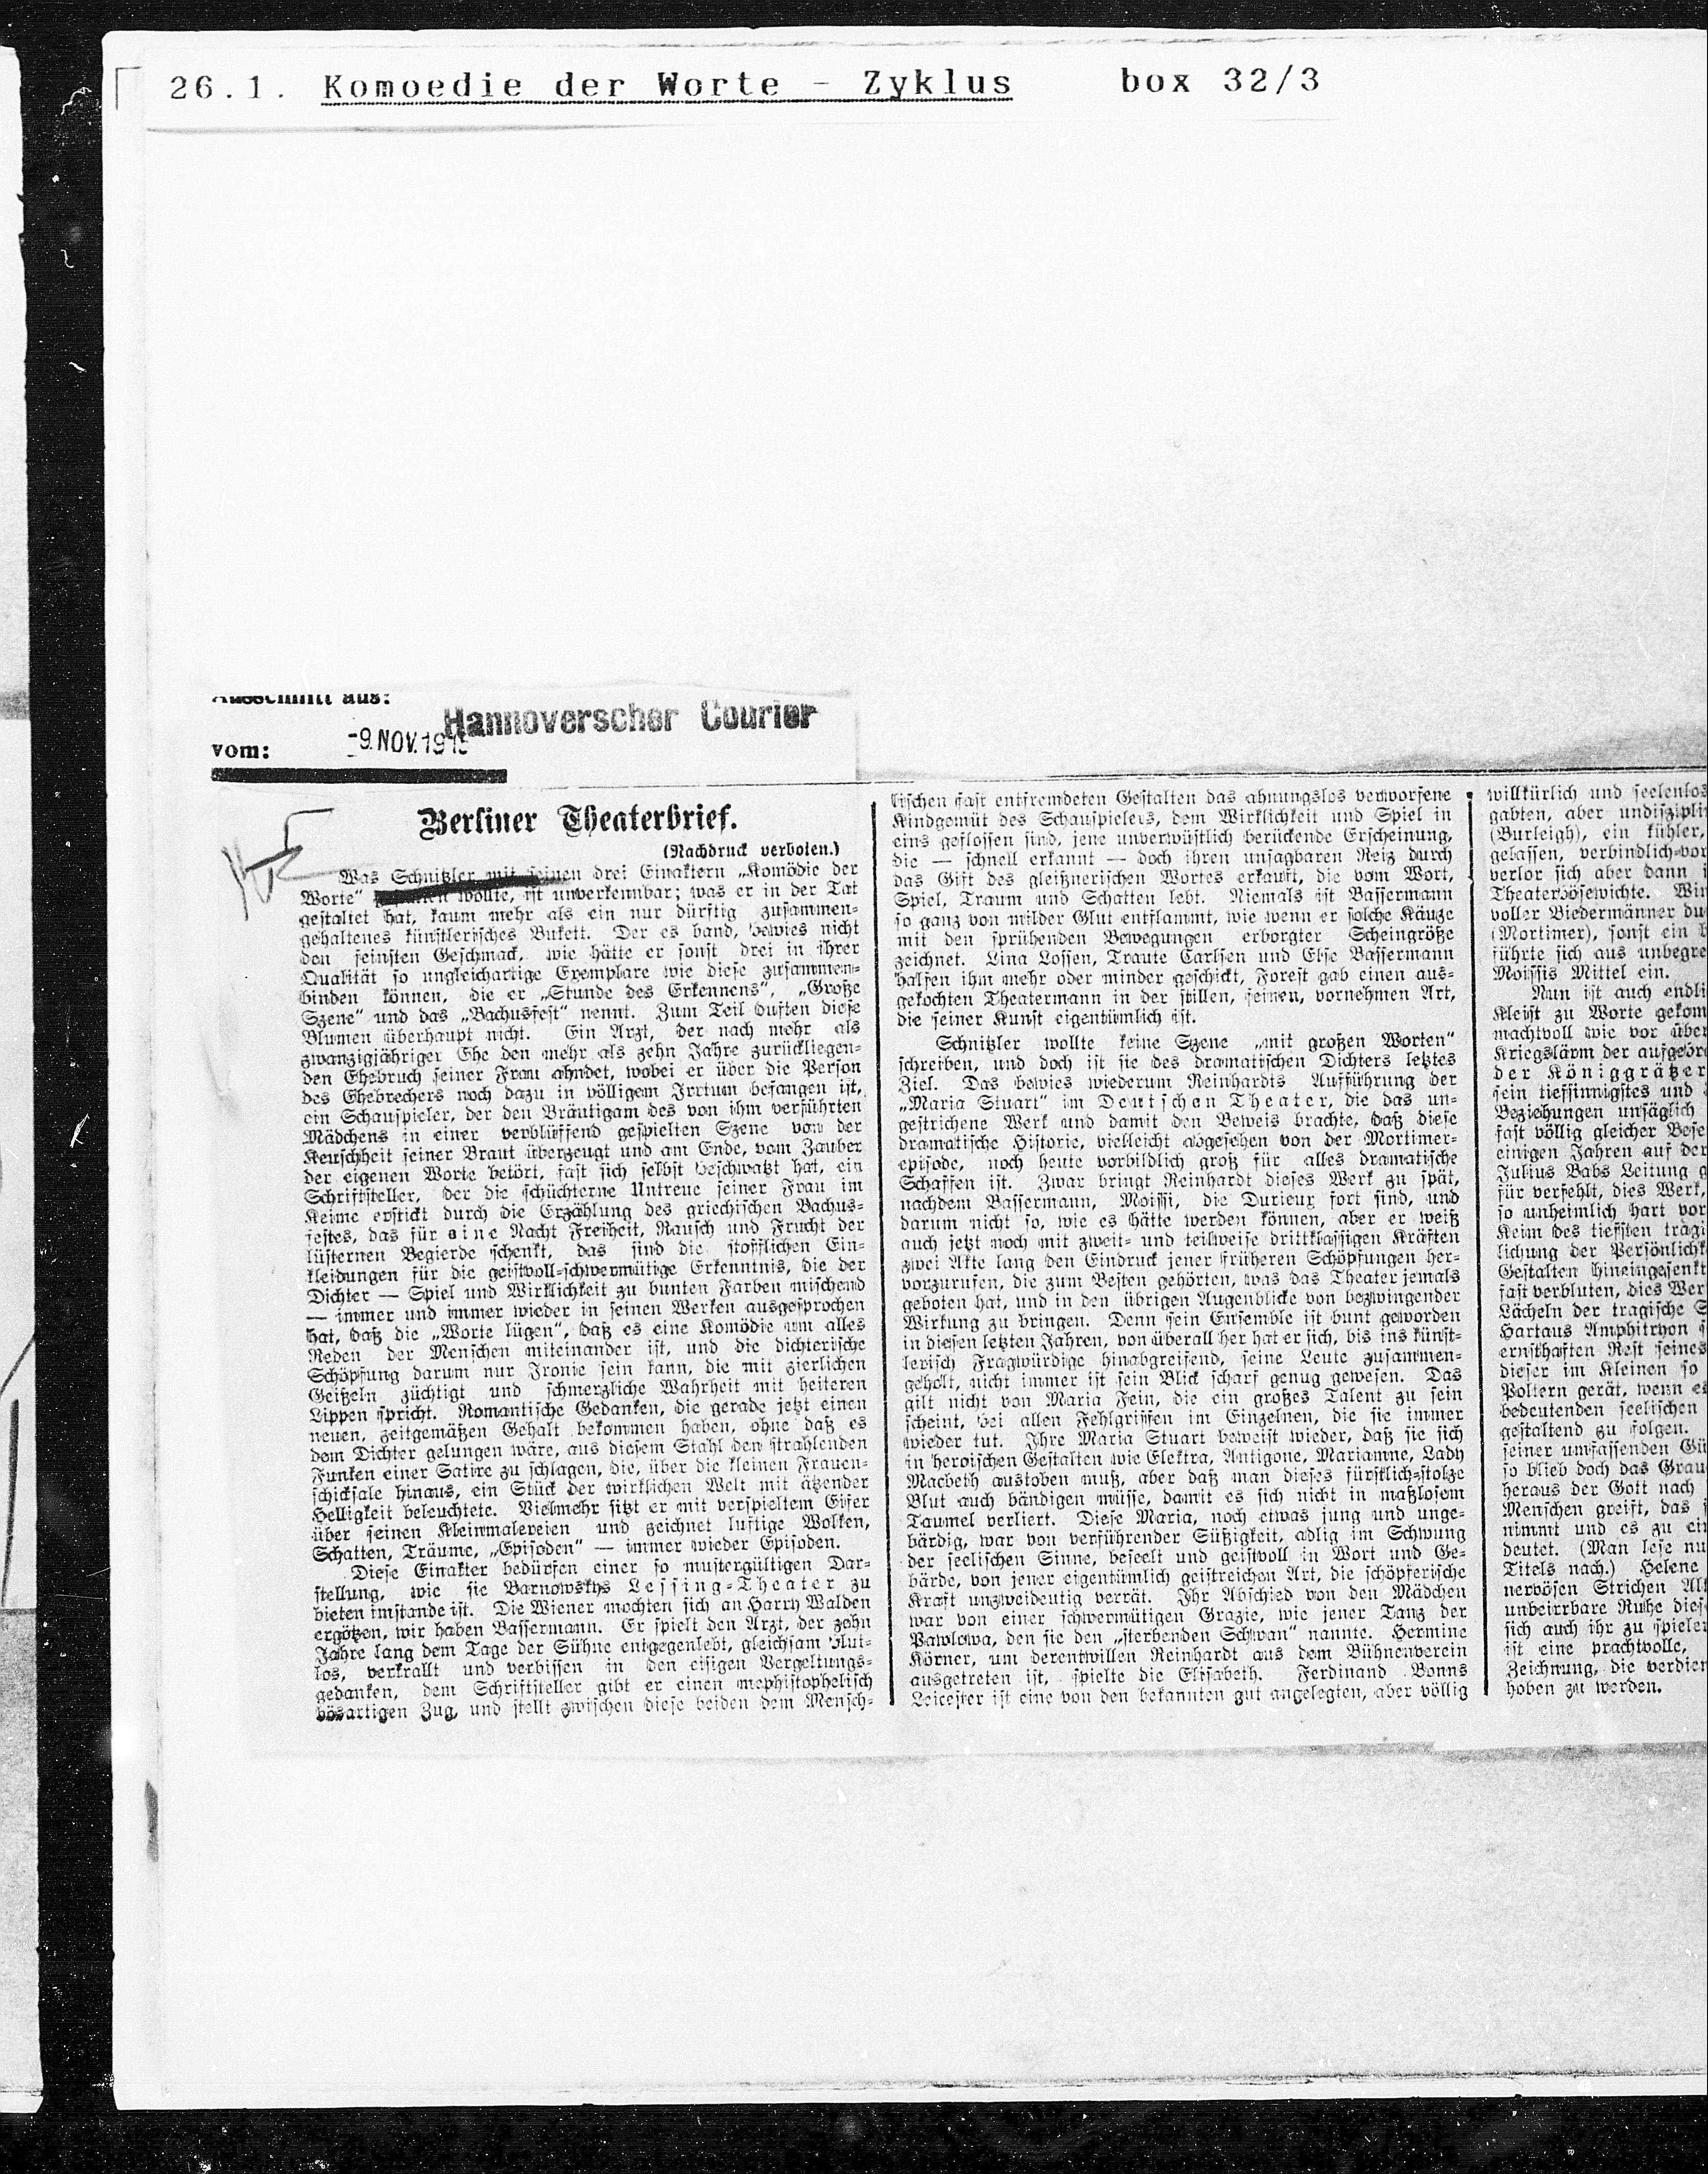 26.1. Komoedie der Worte - Zyklus box 32/3
Ausschnitt aus:
Hannoverscher Courier
vom: -9. NOV. 1915
Berliner Theaterbrief.
(Nachdruck verboten.)
Was Schnitzler mit seinen drei Einaktern „Komödie der
Worte“ wollte, ist unverkennbar; was er in der Tat
gestaltet hat, kaum mehr als ein nur dürftig zusammen-
gehaltenes künstlerisches Bukett. Der es band, bewies nicht
den feinsten Geschmack, wie hätte er sonst drei in ihrer
Qualität so ungleichartige Exemplare wie diese zusammen-
binden können, die er „Stunde des Erkennens“, „Große
Szene“ und das „Bachusfest“ nennt. Zum Teil duften diese
Blumen überhaupt nicht. Ein Arzt, der nach mehr als
zwanzigjähriger Ehe den mehr als zehn Jahre zurückliegen-
den Ehebruch seiner Frau ahndet, wobei er über die Person
des Ehebrechers noch dazu in völligem Irrtum befangen ist,
ein Schauspieler, der den Bräutigam des von ihm verführten
Mädchens in einer verblüffend gespielten Szene von der
Keuschheit seiner Braut überzeugt und am Ende, vom Zauber
der eigenen Worte betört, fast sich selbst beschwatzt hat, ein
Schriftsteller, der die schüchterne Untreue seiner Frau im
Keime erstickt durch die Erzählung des griechischen Bachus-
festes, das für eine Nacht Freiheit, Rausch und Frucht der
lüsternen Begierde schenkt, das sind die stofflichen Ein-
kleidungen für die geistvoll-schwermütige Erkenntnis, die der
Dichter — Spiel und Wirklichkeit zu bunten Farben mischend
— immer und immer wieder in seinen Werken ausgesprochen
hat, daß die „Worte lügen“, daß es eine Komödie um alles
Reden der Menschen miteinander ist, und die dichterische
Schöpfung darum nur Ironie sein kann, die mit zierlichen
Geißeln züchtigt und schmerzliche Wahrheit mit heiteren
Lippen spricht. Romantische Gedanken, die gerade jetzt einen
neuen, zeitgemäßen Gehalt bekommen haben, ohne daß es
dem Dichter gelungen wäre, aus diesem Stahl den strahlenden
Funken einer Satire zu schlagen, die, über die kleinen Frauen-
schicksale hinaus, ein Stück der wirklichen Welt mit ätzender
Helligkeit beleuchtete. Vielmehr sitzt er mit verspieltem Eifer
über seinen Kleinmalereien und zeichnet luftige Wolken,
Schatten, Träume, „Episoden“ — immer wieder Episoden.
Diese Einakter bedürfen einer so mustergültigen Dar-
stellung, wie sie Barnowskys Lessing-Theater zu
bieten imstande ist. Die Wiener mochten sich an Harry Walden
ergötzen, wir haben Bassermann. Er spielt den Arzt, der zehn
Jahre lang dem Tage der Sühne entgegenlebt, gleichsam blut-
los, verkrallt und verbissen in den eisigen Vergeltungs-
gedanken, dem Schriftsteller gibt er einen mephistophelisch
bösartigen Zug, und stellt zwischen diese beiden dem Mensch-
lischen fast entfremdeten Gestalten das ahnungslos verworfene
Kindgemüt des Schauspielers, dem Wirklichkeit und Spiel in
eins geflossen sind, jene unverwüstlich berückende Erscheinung,
die — schnell erkannt — doch ihren unsagbaren Reiz durch
das Gift des gleißnerischen Wortes erkauft, die vom Wort,
Spiel, Traum und Schatten lebt. Niemals ist Bassermann
so ganz von milder Glut entflammt, wie wenn er solche Käuze
mit den sprühenden Bewegungen erborgter Scheingröße
zeichnet. Lina Lossen, Traute Carlsen und Else Bassermann
halfen ihm mehr oder minder geschickt, Forest gab einen aus-
gekochten Theatermann in der stillen, feinen, vornehmen Art,
die seiner Kunst eigentümlich ist.
Schnitzler wollte keine Szene „mit großen Worten“
schreiben, und doch ist sie des dramatischen Dichters letztes
Ziel. Das bewies wiederum Reinhardts Aufführung der
„Maria Stuart“ im Deutschen Theater, die das un-
gestrichene Werk und damit den Beweis brachte, daß diese
dramatische Historie, vielleicht abgesehen von der Mortimer-
episode, noch heute vorbildlich groß für alles dramatische
Schaffen ist. Zwar bringt Reinhardt dieses Werk zu spät,
nachdem Bassermann, Moissi, die Durieux fort sind, und
darum nicht so, wie es hätte werden können, aber er weiß
auch jetzt noch mit zweit- und teilweise drittklassigen Kräften
zwei Akte lang den Eindruck jener früheren Schöpfungen her-
vorzurufen, die zum Besten gehörten, was das Theater jemals
geboten hat, und in den übrigen Augenblicke von bezwingender
Wirkung zu bringen. Denn sein Ensemble ist bunt geworden
in diesen letzten Jahren, von überall her hat er sich, bis ins künst-
lerisch Fragwürdige hinabgreifend, seine Leute zusammen-
geholt, nicht immer ist sein Blick scharf genug gewesen. Das
gilt nicht von Maria Fein, die ein großes Talent zu sein
scheint, bei allen Fehlgriffen im Einzelnen, die sie immer
wieder tut. Ihre Maria Stuart beweist wieder, daß sie sich
in heroischen Gestalten wie Elektra, Antigone, Mariamne, Lady
Macbeth austoben muß, aber daß man dieses fürstlich-stolze
Blut auch bändigen müsse, damit es sich nicht in maßlosem
Taumel verliert. Diese Maria, noch etwas jung und unge-
bärdig, war von verführender Süßigkeit, adlig im Schwung
der seelischen Sinne, beseelt und geistvoll in Wort und Ge-
bärde, von jener eigentümlich geistreichen Art, die schöpferische
Kraft unzweideutig verrät. Ihr Abschied von den Mädchen
war von einer schwermütigen Grazie, wie jener Tanz der
Pawlowa, den sie den „sterbenden Schwan“ nannte. Hermine
Körner, um derentwillen Reinhardt aus dem Bühnenverein
ausgetreten ist, spielte die Elisabeth. Ferdinand Bonns
Leicester ist eine von den bekannten gut angelegten, aber völlig
willkürlich und seelenlos
gabten, aber undiszipli
(Burleigh), ein kühler,
gelassen, verbindlich-vor
verlor sich aber dann
Theaterbösewichte. Win
voller Biedermänner du
(Mortimer), sonst ein
führte sich aus unbegre
Moissis Mittel ein.
Nun ist auch endli
Kleist zu Worte gekom
machtvoll wie vor über
Kriegslärm der aufgeör
der Königgrätzer
sein tiefsinnigstes und
Beziehungen unsäglich
fast völlig gleicher Bese
einigen Jahren auf der
Julius Babs Leitung g
für verfehlt, dies Werk,
so unheimlich hart vor
Keim des tiefsten tragi
lichung der Persönlichk
Gestalten hineingesenkt
fast verbluten, dies Wer
Lächeln der tragische S
Hartaus Amphitryon
ernsthaften Rest seines
dieser im Kleinen so
Poltern gerät, wenn es
bedeutenden seelischen
gestaltend zu folgen.
seiner umfassenden Gü
so blieb doch das Grau
heraus der Gott nach
Menschen greift, das
nimmt und es zu ein
deutet. (Man lese nu
Titels nach.) Helene
nervösen Strichen Alk
unbeirrbare Ruhe dies
sich auch ihr zu spielen
ist eine prachtvolle,
Zeichnung, die verdien
hoben zu werden.